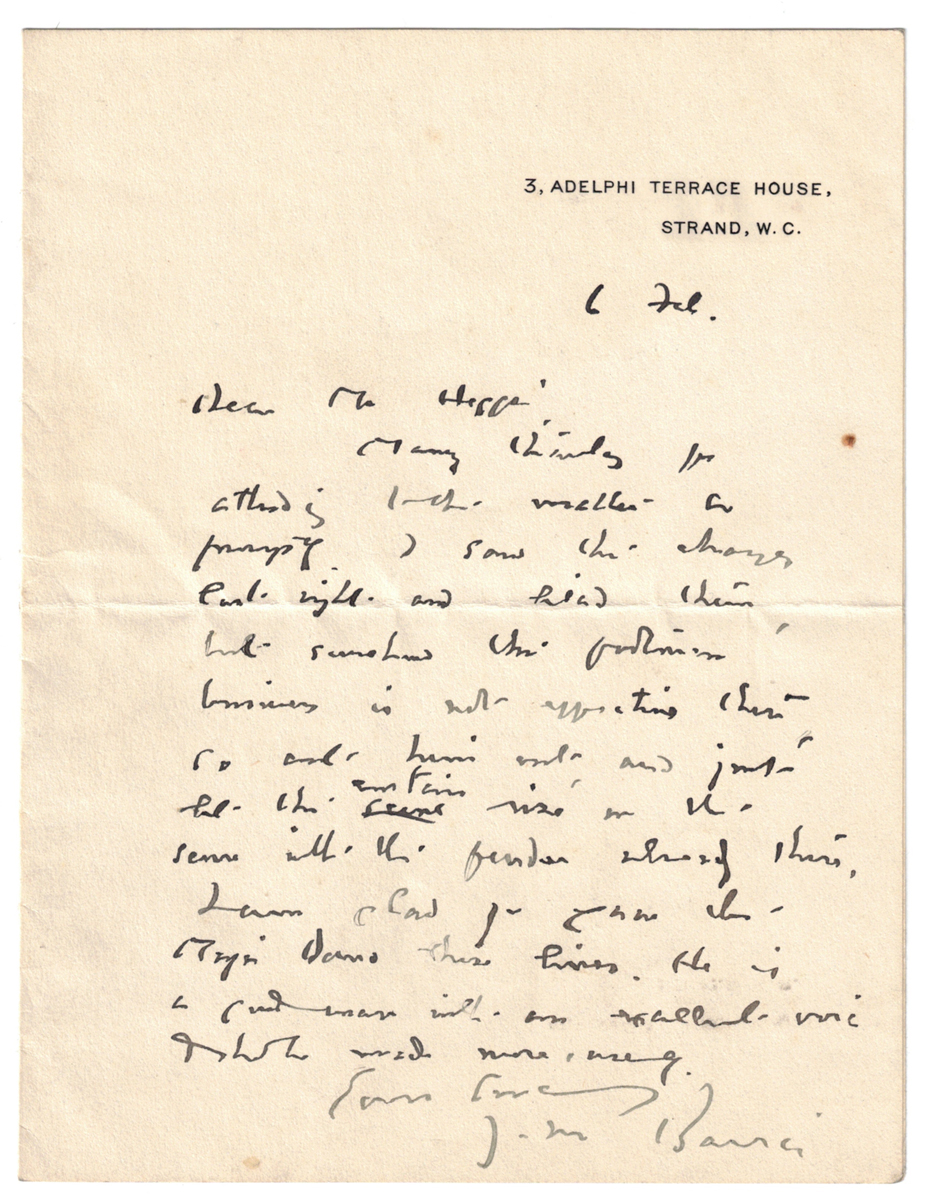 3, ADELPHI TERRACE HOUSE,
STRAND, W. C.
6 Feb.
Dear Mr
Many thanks for
attending to the matter so
promptly. I saw the changes
last night and liked them
but somehow the
business is not effective there
so cut him out and just
let the curtain rise on the
scene with the already there.
I am glad you gave the
Major Domo those lines. He is
a good man with an excellent voice
made more use of.
Yours sincerely
J. M. Barrie